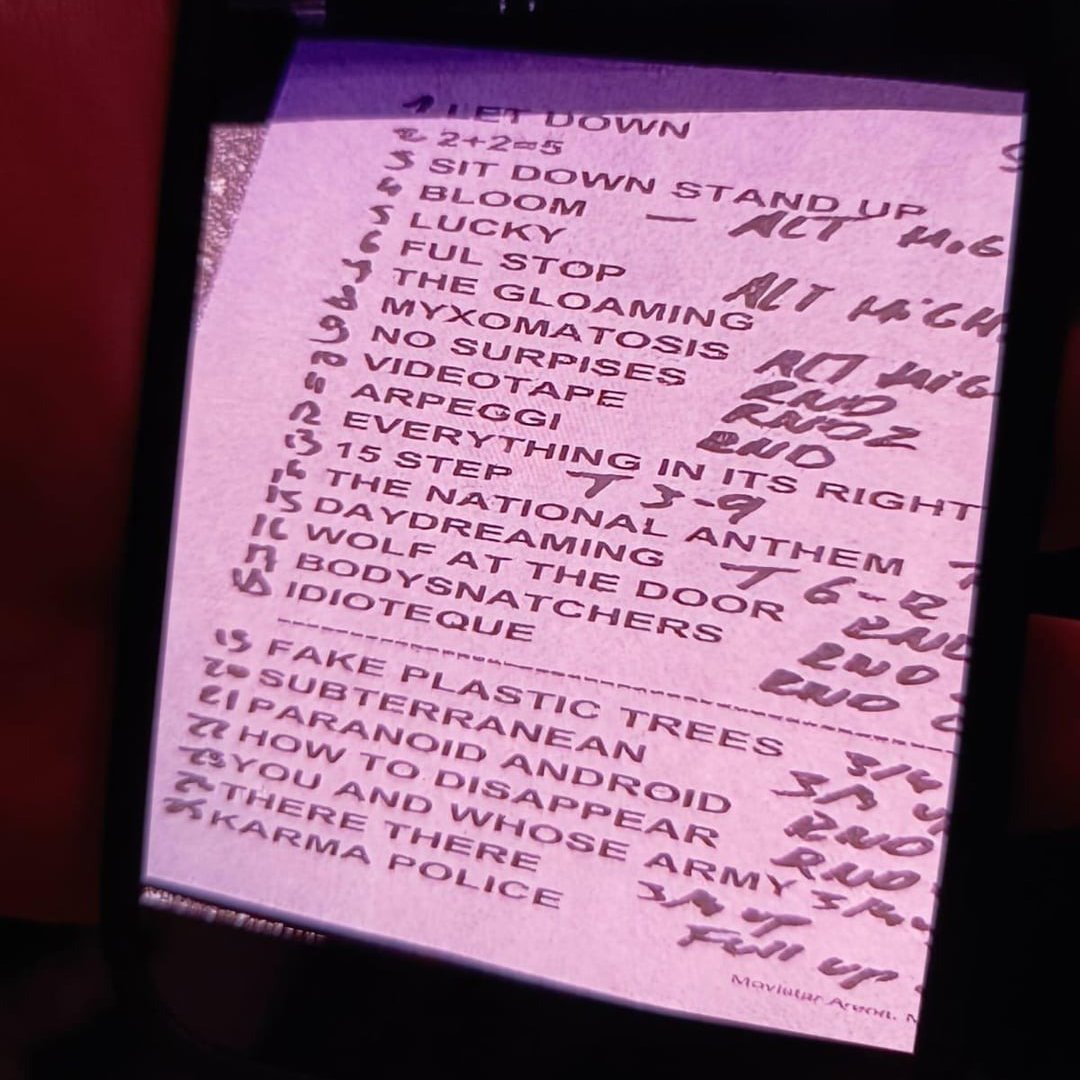 1 LET DOWN
2 2+2=5
3 SIT DOWN STAND UP
4 BLOOM — ALT HIG
5 LUCKY
6 FUL STOP ALT HIGH
7 THE GLOAMING
8 MYXOMATOSIS ALT HIG
9 NO SURPISES RND
10 VIDEOTAPE RND2
11 ARPEGGI RND
12 EVERYTHING IN ITS RIGHT
13 15 STEP T 3-9
14 THE NATIONAL ANTHEM T
15 DAYDREAMING T 6-
16 WOLF AT THE DOOR RND
17 BODYSNATCHERS RND
18 IDIOTEQUE RND
19 FAKE PLASTIC TREES 3/4
20 SUBTERRANEAN 3/4 U
21 PARANOID ANDROID RND
22 HOW TO DISAPPEAR RND
23 YOU AND WHOSE ARMY 3/4
24 THERE THERE 3/4 UP
25 KARMA POLICE FULL UP
Movistar Arena, M